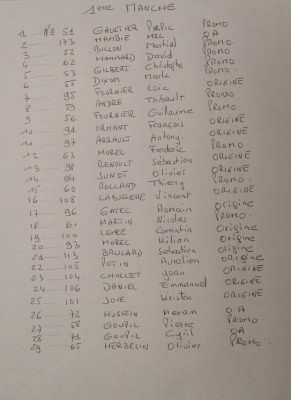 1ere MANCHE
1 N/2 51 GAULTIER PROMO
2 173 HAMBIE MEL OA
3 52 BILLON Martial PROMO
4 62 HAMMARD David PROMO
5 53 GILBERT Christophe PROMO
6 55 DIXON Mark PROMO.
7 95 FOURNIER Loic ORIGINE
8 59 ANDRE Thibault PROMO
9 56 FOURNIER Guillaume PROMO.
10 91 ORHANT François ORIGINE
11 97 ARRAULT Antony ORIGINE
12 63 MOREL Frederic PROMO.
13 98 RENOULT Sebastien ORIGINE
14 94 JUNDT Olivier ORIGINE
15 60 ROLLAND Thierry PROMO.
16 108 Vincent ORIGINE
17 96 GATEC Romain Origine
18 61 MARTIN Nicolas PROMO.
19 100 Corentin Origine
20 93 MOREL Kilian Origine
21 113 BRULARD Sebastien Origine
22 105 POTIN Aurelien ORIGINE
23 104 CHOLLET yoan ORIGINE
24 106 DANIEL Emmanuel ORIGINE
25 101 JOIE ORIGINE
26 72 HUSSEIN OA
27 58 GOUPIL Pierre PROMO
28 71 GOUPIL Cyril OA
29 65 HERBELIN Olivier PROMO.